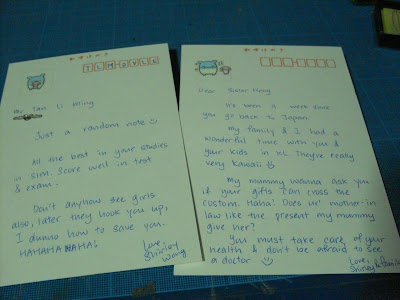 TLMDOLE
Mr Tan U Ming
Just a random note
All the best in your studies
in sim. Score well in test
& exam.
Don't anyhow see girls
also, later they hook you up,
I dunno how to save you.
HAHAHA HAHA!
Love,
Shirley
Wong
Dear Sister Hong
It's been a week since
you go back to Japan.
My family & I had a
wonderful time with you &
your kids in KL. They're really
very kawaii
My mummy wanna ask you
if your gifts can cross the
custom. Haha! Does ur mother-in
law like the present my mummy
give her?
You must take care of your
health & don't be afraid to see
a doctor
Love,
Shirley & family